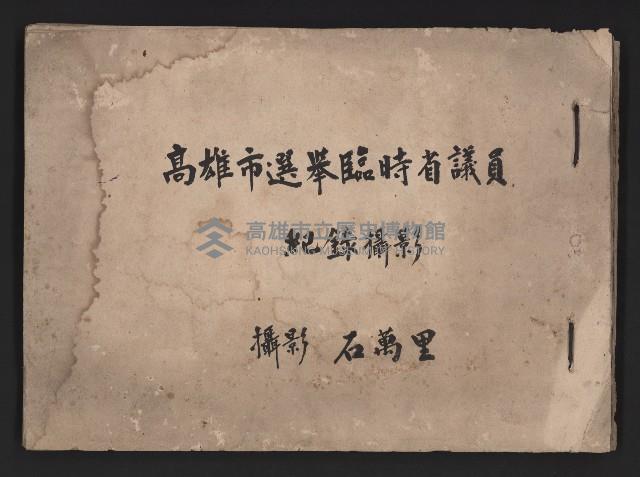 高雄市選举臨時省議員
高雄市立歷史博物館
KAOHSIUNG MUSEUM OF HISTORY
紀錄攝影
攝影 石萬里